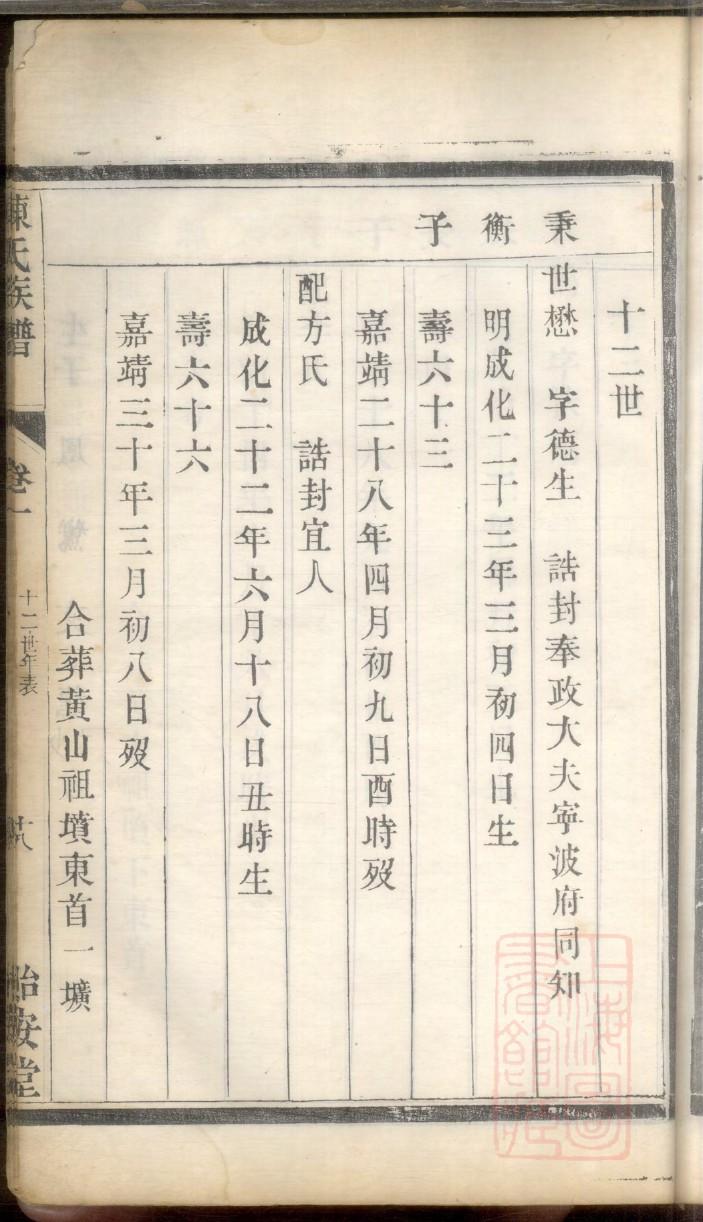 十二世
秉衡子
世懋　字德生　誥封奉政大夫寧波府同知
明成化二十三年三月初四日生
壽六十三
嘉靖二十八年四月初九日酉時歿
配方氏　誥封宜人
成化二十二年六月十八日丑時生
壽六十六
嘉靖三十年三月初八日歿
合葬黄山祖墳東首一壙
陳氏族譜
卷一
十二世年表
怡安堂
上海圖書館藏